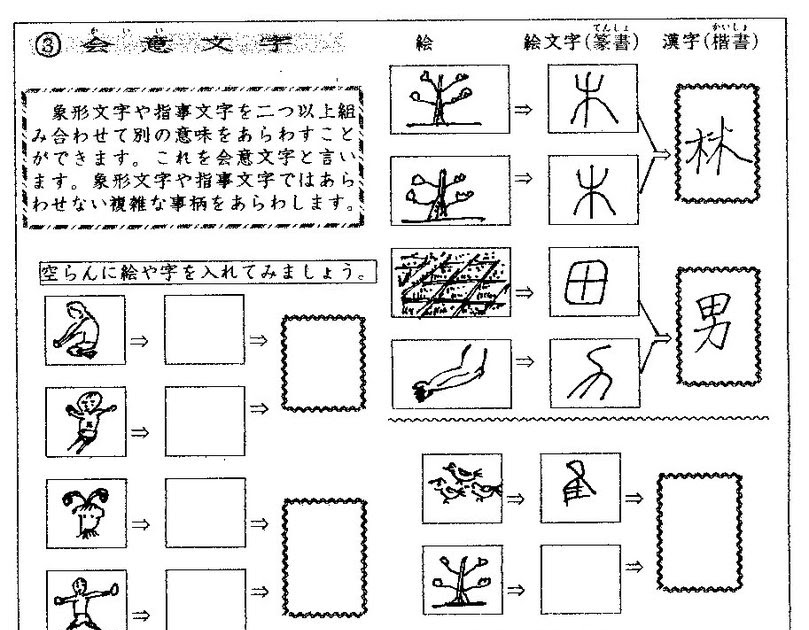 ③会意文字
かいい
象形文字や指事文字を二つ以上組
み合わせて別の意味をあらわすこと
ができます。これを会意文字と言い
ます。象形文字や指事文字ではあら
わせない複雑な事柄をあらわします。
空らんに絵や字を入れてみましょう。
絵 絵文字(篆書) 漢字(楷書)
てんしょ かいしょ
⇒ 木
林
⇒ 木
⇒ 田
男
⇒